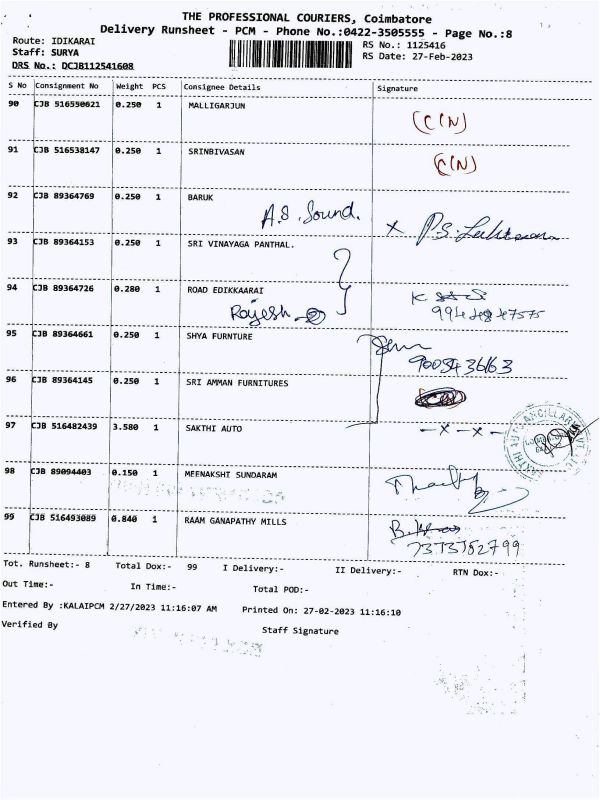 THE PROFESSIONAL COURIERS, Coimbatore
Delivery Runsheet - PCM - Phone No.:0422-3505555 - Page No.:8
Route: IDIKARAI
RS No.: 1125416
Staff: SURYA
RS Date: 27-Feb-2023
DRS No.: DCJB112541608
S No Consignment No Weight PCS Consignee Details Signature
90 CJB 516550621 0.250 1 MALLIGARJUN
(C(N)
91 CJB 516538147 0.250 1 SRINBIVASAN
(C(N)
92 CJB 89364769 0.250 1 BARUK
A.S. Sound.
93 CJB 89364153 0.250 1 SRI VINAYAGA PANTHAL.
94 CJB 89364726 0.280 1 ROAD EDIKKAARAI
Rajesh
95 CJB 89364661 0.250 1 SHYA FURNTURE
96 CJB 89364145 0.250 1 SRI AMMAN FURNITURES
97 CJB 516482439 3.580 1 SAKTHI AUTO
-x-x-
98 CJB 89094403 0.150 1 MEENAKSHI SUNDARAM
99 CJB 516493089 0.840 1 RAAM GANAPATHY MILLS
Tot. Runsheet:- 8 Total Dox:- 99 I Delivery:- II Delivery:- RTN Dox:-
Out Time:- In Time:- Total POD:-
Entered By :KALAIPCM 2/27/2023 11:16:07 AM Printed On: 27-02-2023 11:16:10
Verified By Staff Signature